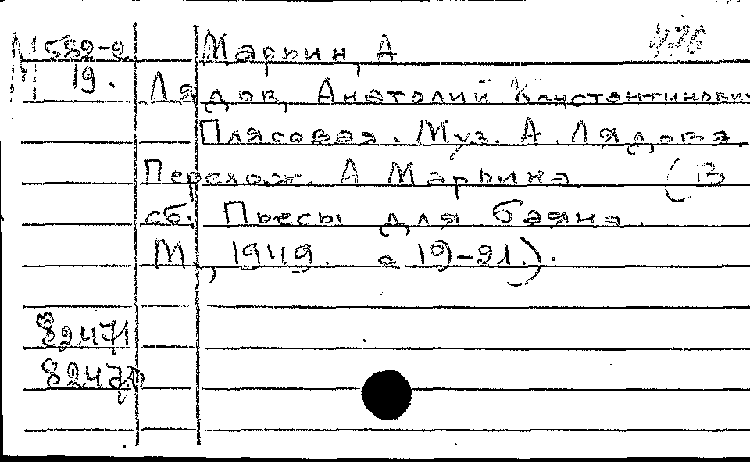 М 552-2 Марьин, А
М 19. Лядов, Анатолий Константинович
Плясовая. Муз. А. Лядова.
Перелож. А Марьина (В
сб. Пьесы для баяна.
М., 1949. с 19-21.).
82471